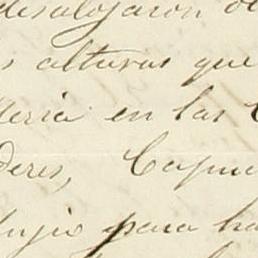 desalojaron de
s alturas que
lleria en las C
deres, Capu
lujio para ha